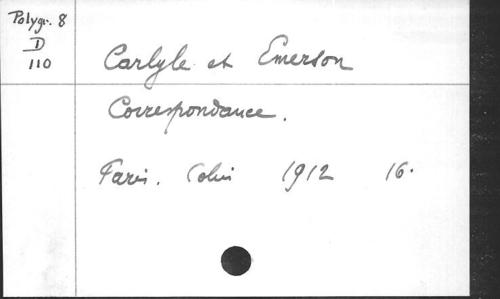 Polygr. 8
D
110
Carlyle et Emerson
Correspondance.
Paris. Colin 1912 16.